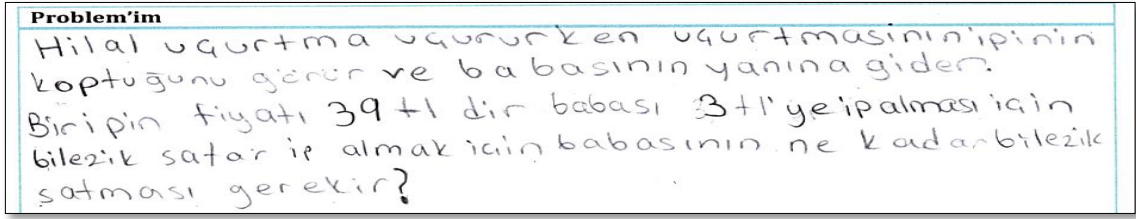 Problem'im
Hilal uçurtma uçururken uçurtmasının ipinin
koptuğunu görür ve babasının yanına gider.
Bir ipin fiyatı 39 tl dir babası 3 tl'ye ip alması için
bilezik satar ip almak için babasının ne kadar bilezik
satması gerekir?